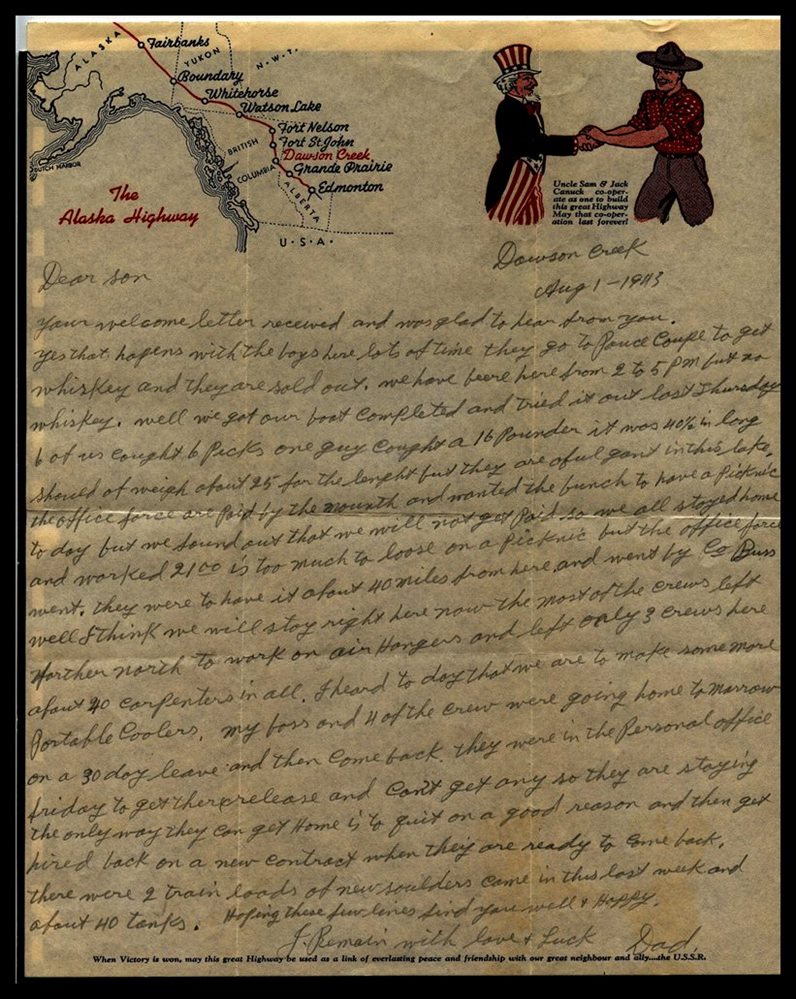 ALASKA
Fairbanks
YUKON
N.W.T.
Boundary
Whitehorse
Watson Lake
Fort Nelson
Fort St John
Dawson Creek
Grande Prairie
Edmonton
BRITISH
COLUMBIA
ALBERTA
DUTCH HARBOR
U.S.A.
The
Alaska Highway
Uncle Sam & Jack
Canuck co-oper-
ate as one to build
this great Highway
May that co-oper-
ation last forever!
Dawson Creek
Aug 1-1943
Dear son
Your welcome letter received and was glad to hear from you.
yes that hapens with the boys here lots of time they go to Pouce Coupe to get
whiskey and they are sold out. we have beere here from 2 to 5 PM but no
whiskey. well we got our boat completed and tried it out last Thursday
6 of us cought 6 Picks one guy cought a 16 Pounder it was 40½ in long
should of weigh about 25 for the lenght but they are aful gant in this lake.
the office force are Paid by the mounth and wanted the bunch to have a Picknic
to day but we found out that we will not get Paid so we all stayed home
and worked 21 00 is too much to loose on a Picknic but the office force
went. they were to have it about 40 miles from here and went by Co Buss
well I think we will stay right here now the most of the crews left
farther north to work on air Hangers and left only 3 crews here
about 40 carpenters in all. I heard to day that we are to make some more
Portable Coolers. my boss and 4 of the crew were going home to marrow
on a 30 day leave and then Come back. they were in the Personal office
friday to get there release and Can't get any so they are staying
the only way they can get Home is to quit on a good reason and then get
hired back on a new contract when they are ready to Come back.
there were 2 train loads of new soulders came in this last week and
about 40 tanks. Hoping these few lines find you well & Happy.
I Remain with love & Luck Dad.
When Victory is won, may this great Highway be used as a link of everlasting peace and friendship with our great neighbour and ally....the U.S.S.R.